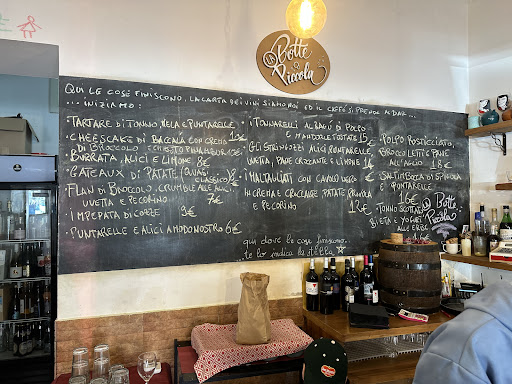 LA
Botte
Piccola
QUI LE COSE FINISCONO, LA CARTA DEI VINI SIAMO NOI ED IL CAFFÈ SI PRENDE AL BAR...
... INIZIAMO:
TARTARE DI TONNO, MELA E PUNTARELLE 13€
CHEESECAKE DI BACCALÀ CON CREMA
DI BROCCOLO E CHIPS TOPINAMBUR 13€
BURRATA, ALICI E LIMONE 8€
GATEAUX DI PATATE (QUASI CLASSICO)
FLAN DI BROCCOLO, CRUMBLE ALLE ALICI,
UVETTA E PECORINO 7€
IMPEPATA DI COZZE 9€
PUNTARELLE E ALICI A MODO NOSTRO 6€
I TONNARELLI AL RAGÙ DI POLPO
E MANDORLE TOSTATE 15€
GLI STRINGOZZI ALICI, PUNTARELLE,
UVETTA, PANE CROCCANTE E LIMONE 14€
I MALTAGLIATI CON CAVOLO NERO
IN CREMA E CROCCANTE PATATE, PROVOLA
E PECORINO 12€
POLPO ROSTICCIATO,
BROCCOLETTI E PANE
ALL'AGLIO 18€
SALTIMBOCCA DI SPIGOLA
E PUNTARELLE
16€
TONNO SCOTTATO
BIETA E YOGURT
ALLE ERBE
LA Botte
Piccola
qui dove le cose finiscono
te lo indica la stella
Del Monte